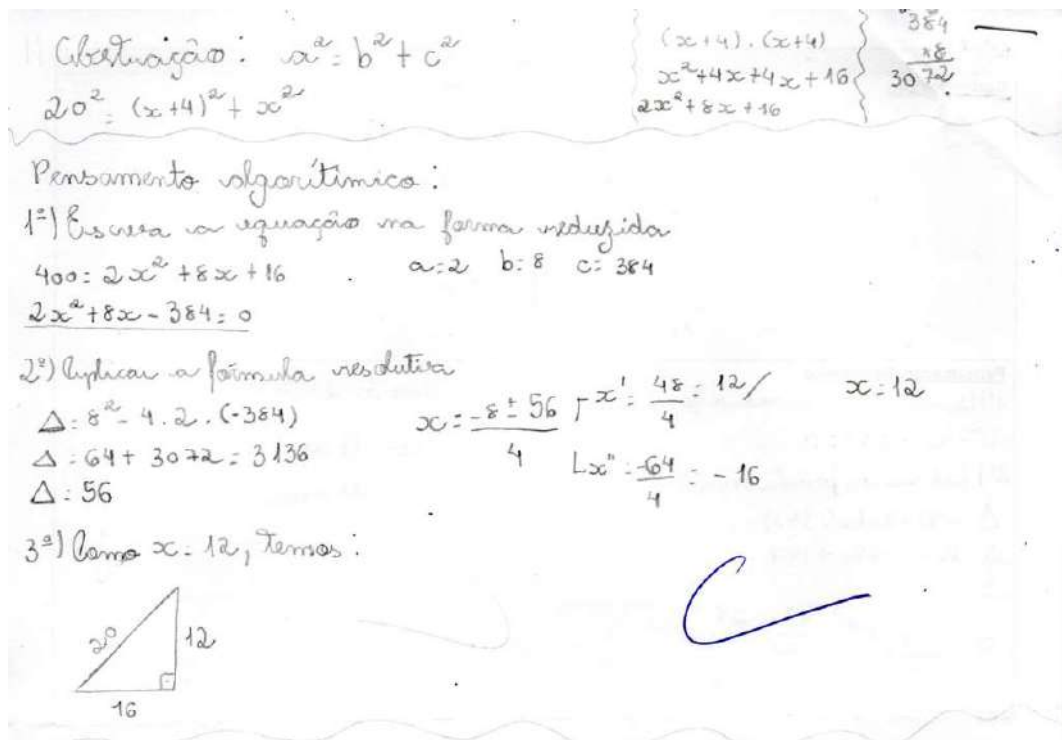 Abstração: a² = b² + c²
20² = (x+4)² + x²
(x+4).(x+4)
x²+4x+4x+16
2x²+8x+16
384
×8
3072
Pensamento algorítimico:
1º) Escreva a equação na forma reduzida
400 = 2x² + 8x + 16 a=2 b=8 c= 384
2x²+8x-384=0
2º) Aplicar a fórmula resolutiva
Δ = 8² - 4.2.(-384)
Δ = 64 + 3072 = 3136
Δ = 56
x = -8 ± 56 / 4
x' = 48/4 = 12
x" = -64/4 = -16
x = 12
3º) Como x = 12, temos:
20
12
16